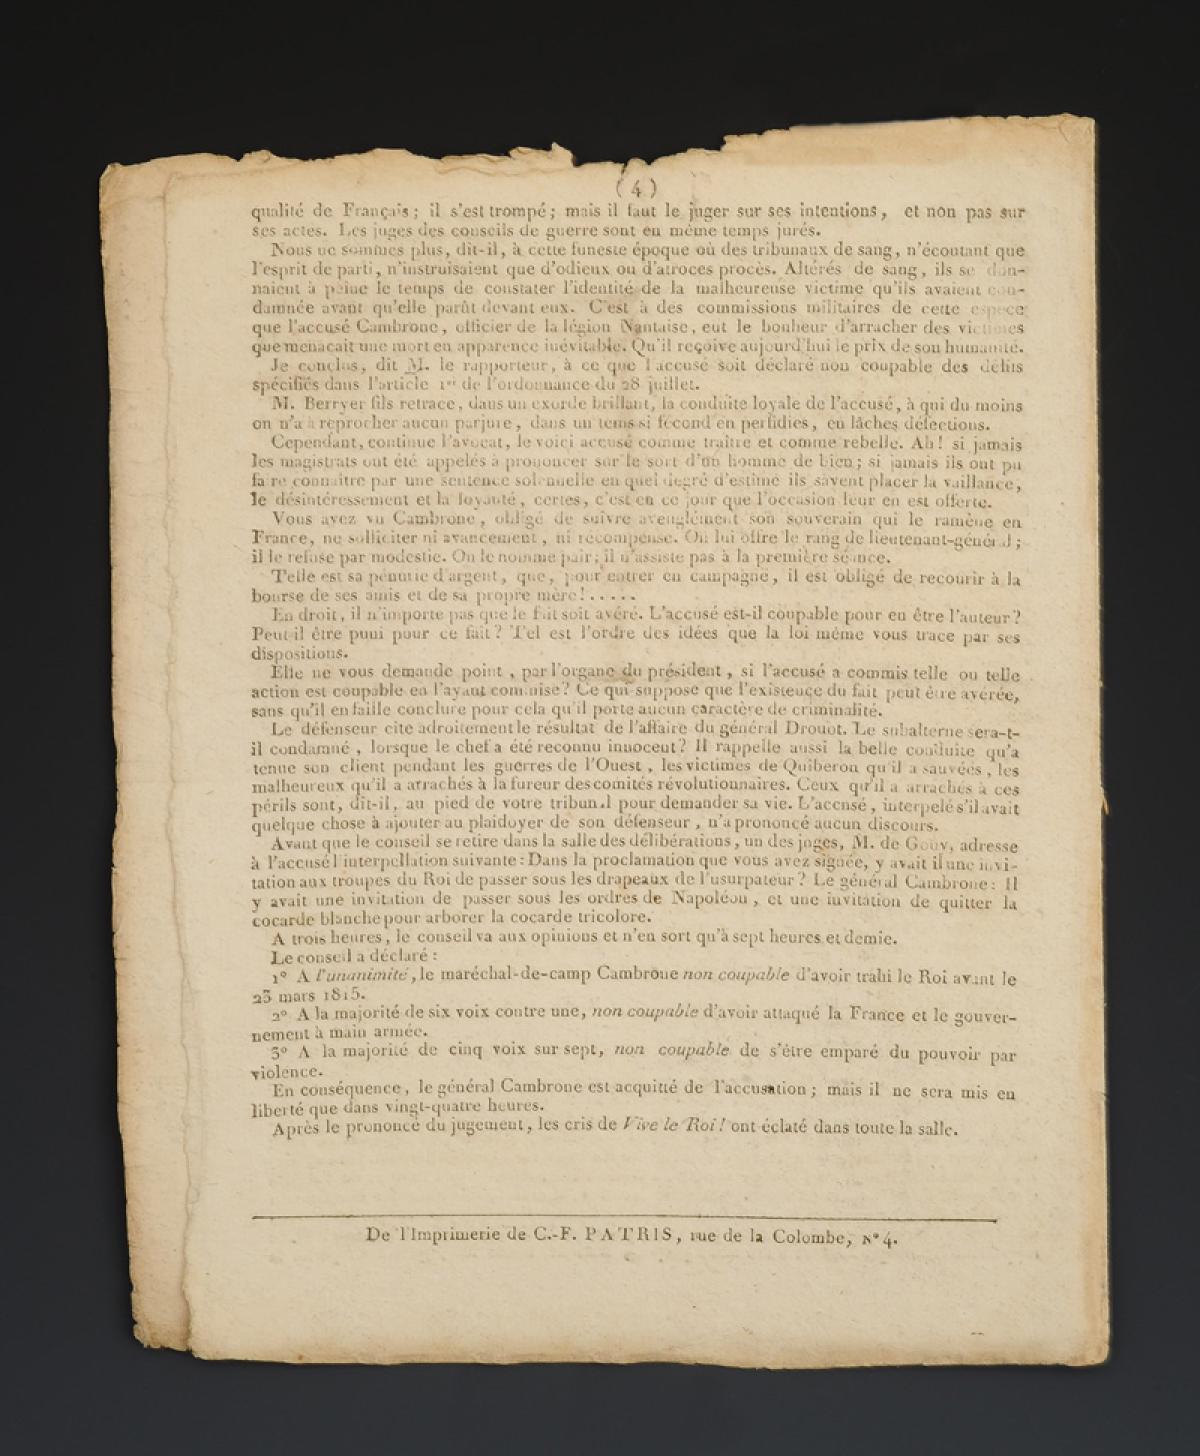 (4)
qualité de Français; il s'est trompé; mais il faut le juger sur ses intentions, et non pas sur
ses actes. Les juges des conseils de guerre sont en même temps jurés.
Nous ne sommes plus, dit-il, à cette funeste époque où des tribunaux de sang, n'écoutant que
l'esprit de parti, n'instruisaient que d'odieux ou d'atroces procès. Altérés de sang, ils se don-
naient à peine le temps de constater l'identité de la malheureuse victime qu'ils avaient con-
damnée avant qu'elle parût devant eux. C'est à des commissions militaires de cette espece
que l'accusé Cambrone, officier de la légion Nantaise, eut le bonheur d'arracher des victimes
que menacait une mort en apparence inévitable. Qu'il reçoive aujourd'hui le prix de son humanité.
Je conclus, dit M. le rapporteur, à ce que l'accusé soit déclaré non coupable des délits
spécifiés dans l'article 1er de l'ordonnance du 28 juillet.
M. Berryer fils retrace, dans un exorde brillant, la conduite loyale de l'accusé, à qui du moins
on n'a à reprocher aucun parjure, dans un tems si fécond en perfidies, en lâches défections.
Cependant, continue l'avocat, le voici accusé comme traître et comme rebelle. Ah! si jamais
les magistrats ont été appelés à prononcer sur le sort d'un homme de bien; si jamais ils ont pu
faire connaître par une sentence solennelle en quel degré d'estime ils savent placer la vaillance,
le désintéressement et la loyauté, certes, c'est en ce jour que l'occasion leur en est offerte.
Vous avez vu Cambrone, obligé de suivre aveuglément son souverain qui le ramène en
France, ne solliciter ni avancement, ni récompense. On lui offre le rang de lieutenant-général;
il le refuse par modestie. On le nomme pair; il n'assiste pas à la première séance.
Telle est sa pénurie d'argent, que, pour entrer en campagne, il est obligé de recourir à la
bourse de ses amis et de sa propre mère!.....
En droit, il n'importe pas que le fait soit avéré. L'accusé est-il coupable pour en être l'auteur?
Peut-il être puni pour ce fait? Tel est l'ordre des idées que la loi même vous trace par ses
dispositions.
Elle ne vous demande point, par l'organe du président, si l'accusé a commis telle ou telle
action est coupable en l'ayant commise? Ce qui suppose que l'existence du fait peut être avérée,
sans qu'il en faille conclure pour cela qu'il porte aucun caractère de criminalité.
Le défenseur cite adroitement le résultat de l'affaire du général Drouot. Le subalterne sera-t-
il condamné, lorsque le chef a été reconnu innocent? Il rappelle aussi la belle conduite qu'a
tenue son client pendant les guerres de l'Ouest, les victimes de Quiberon qu'il a sauvées, les
malheureux qu'il a arrachés à la fureur des comités révolutionnaires. Ceux qu'il a arrachés à ces
périls sont, dit-il, au pied de votre tribunal pour demander sa vie. L'accusé, interpelé s'il avait
quelque chose à ajouter au plaidoyer de son défenseur, n'a prononcé aucun discours.
Avant que le conseil se retire dans la salle des délibérations, un des juges, M. de Gouy, adresse
à l'accusé l'interpellation suivante: Dans la proclamation que vous avez signée, y avait il une invi-
tation aux troupes du Roi de passer sous les drapeaux de l'usurpateur? Le général Cambrone: Il
y avait une invitation de passer sous les ordres de Napoléon, et une invitation de quitter la
cocarde blanche pour arborer la cocarde tricolore.
A trois heures, le conseil va aux opinions et n'en sort qu'à sept heures et demie.
Le conseil a déclaré:
1° A l'unanimité, le maréchal-de-camp Cambrone non coupable d'avoir trahi le Roi avant le
23 mars 1815.
2° A la majorité de six voix contre une, non coupable d'avoir attaqué la France et le gouver-
nement à main armée.
3° A la majorité de cinq voix sur sept, non coupable de s'être emparé du pouvoir par
violence.
En conséquence, le général Cambrone est acquitté de l'accusation; mais il ne sera mis en
liberté que dans vingt-quatre heures.
Après le prononcé du jugement, les cris de Vive le Roi! ont éclaté dans toute la salle.
De l'Imprimerie de C.-F. PATRIS, rue de la Colombe, N° 4.